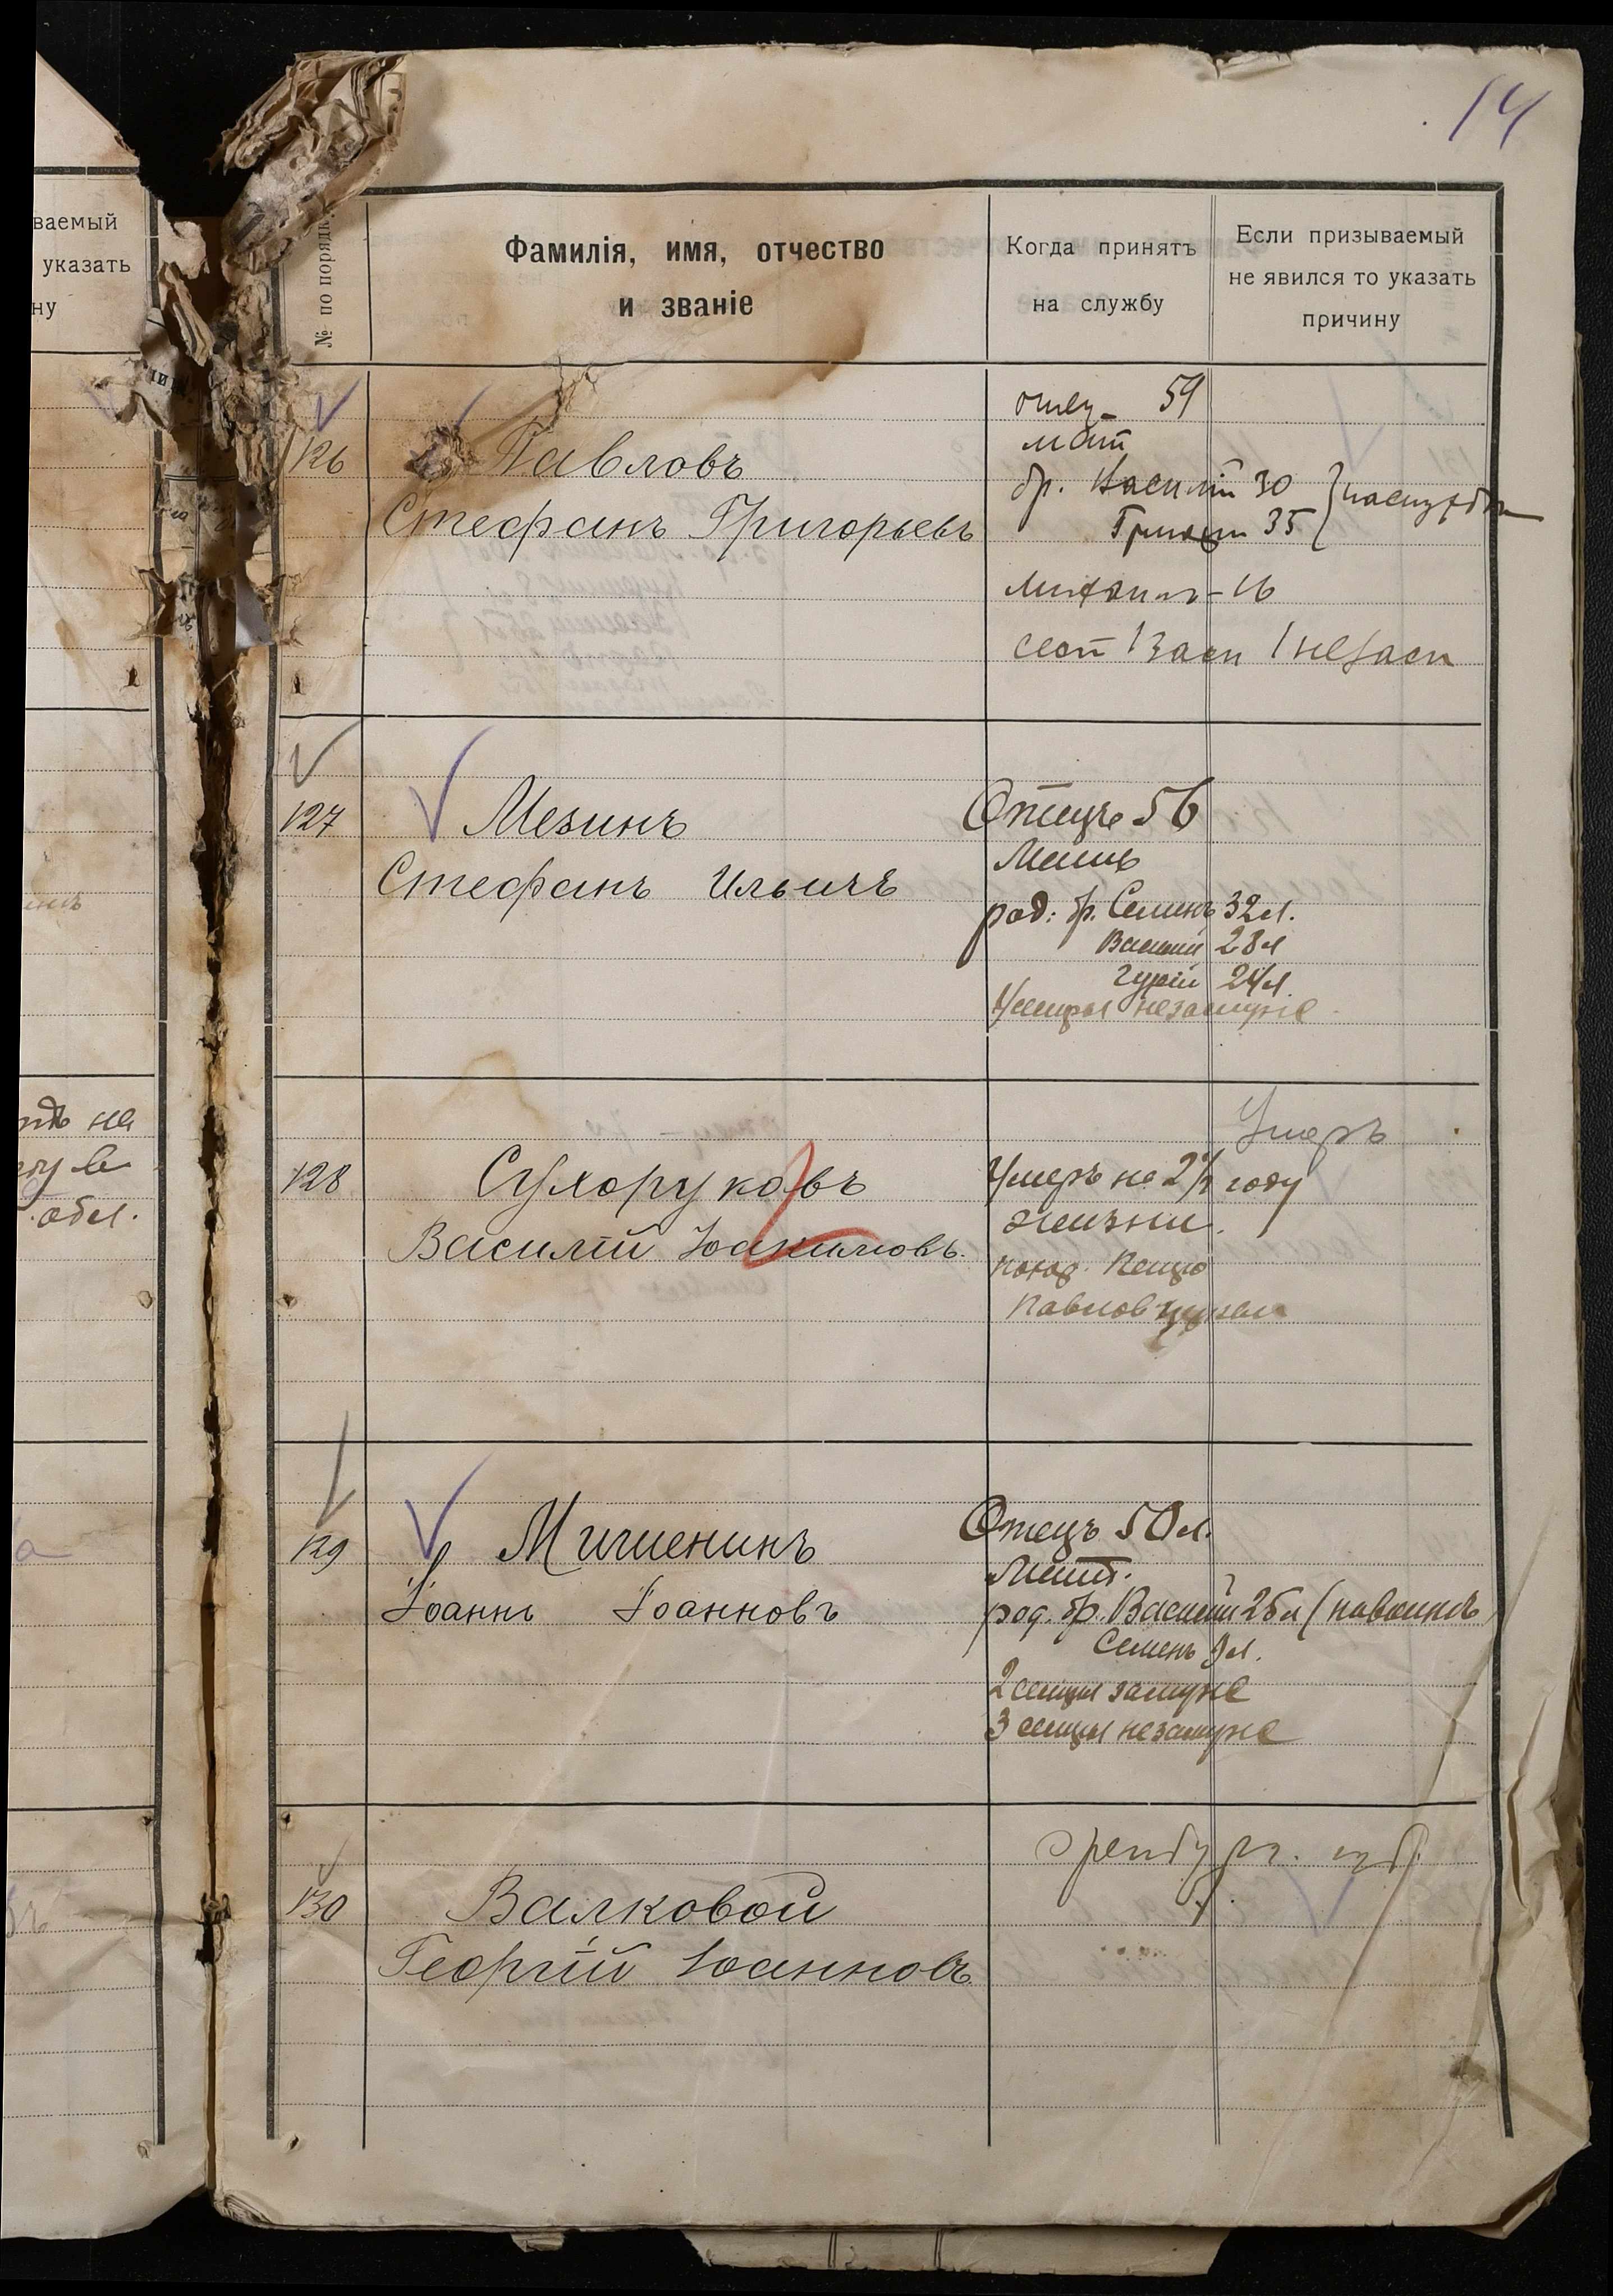 14
ваемый
указать
ну
№ по порядк.
Фамилія, имя, отчество
и званіе
Когда принятъ
на службу
Если призываемый
не явился то указать
причину
126
Павловъ
Стефанъ Григорьевъ
отец 59
мат
бр. Василій 30
Григорій 35
Михаилъ - 16
сест 1 зам 1 незам
127
Мезинъ
Стефанъ Ильичъ
Отецъ 56
Мать
род. бр. Семенъ 32 л.
Василій 28 л
Гурій 24 л.
незамуже
на
128
Сухоруковъ
Василій Іоакимовъ.
Умеръ
Умеръ на 2 1/2 году
жизни.
129
Мишенинъ
Іоаннъ Іоанновъ
Отецъ 50 л.
Мат.
род. бр. Василій 26 л
Семенъ 9 л.
2 сестры замуже
3 сестры незамуже
130
Валковой
Георгій Іоанновъ
Оренбург. губ.